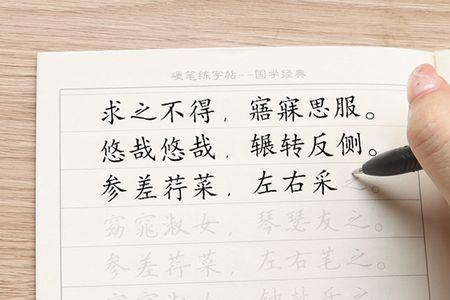 硬笔练字帖--国学经典
求之不得，寤寐思服。
悠哉悠哉，辗转反侧。
参差荇菜，左右采之。
窈窕淑女，琴瑟友之。
参差荇菜，左右笔之。